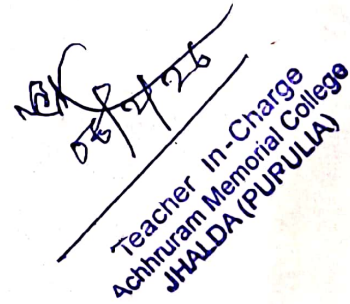 05/2/26
Teacher In-Charge
Achhruram Memorial College
JHALDA (PURULIA)